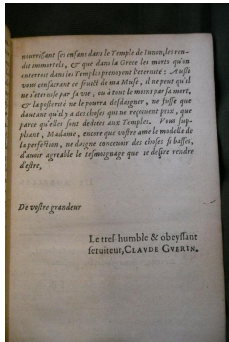 nourrissant ses enfans dans le Temple de Iunon, les ren-
dit immortels, & que dans la Grece les morts qu'on
enterroit dans les Temples prenoyent l'eternité: Aussi
vous consacrant ce fruict de ma Muse, il ne peut qu'il
ne s'eternise par sa vie, ou à tout le moins par sa mort,
& la posterité ne le pourra desdaigner, ne fusse que
dautant qu'il y a des choses qui ne reçoiuent prix, que
parce qu'elles sont dediees aux Temples. Vous sup-
pliant, Madame, encore que vostre ame le modelle de
la perfection, ne daigne conceuoir des choses si basses,
d'auoir agreable le tesmoignage que ie desire rendre
d'estre,
De vostre grandeur
Le tres humble & obeyssant
seruiteur, CLAVDE GVERIN.